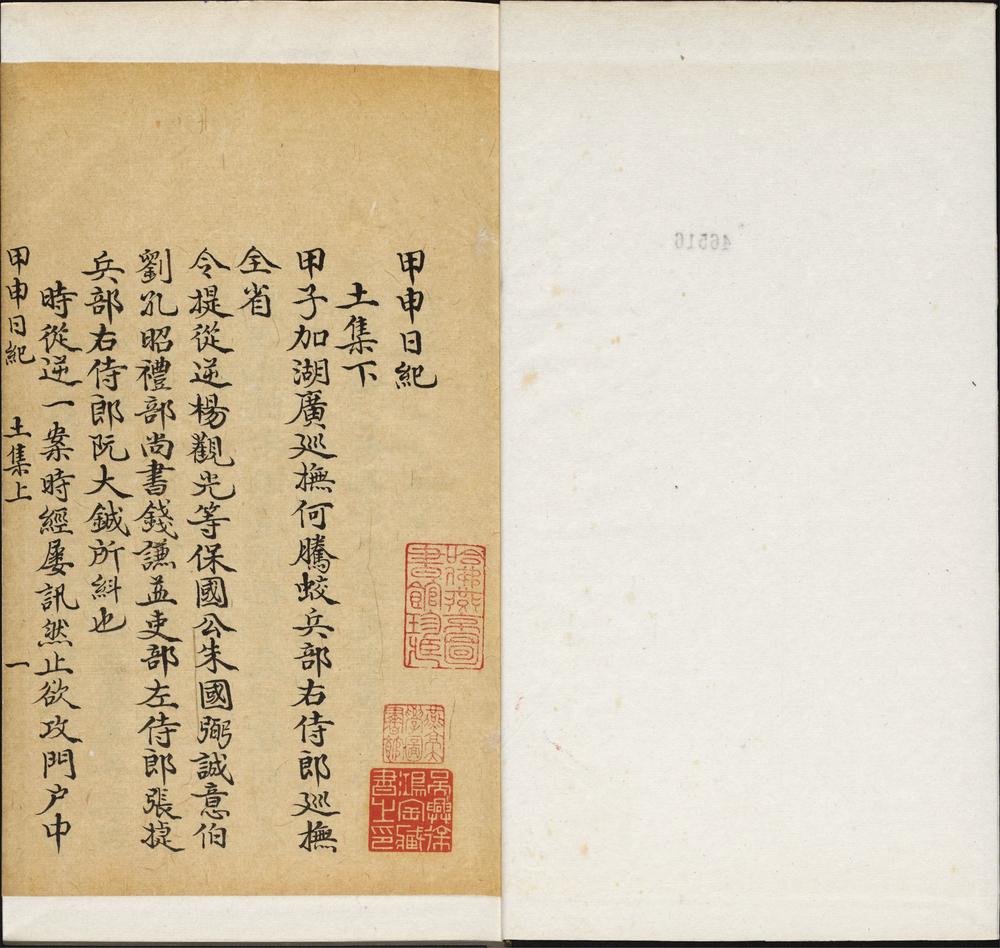 46516
甲申日紀
土集下
甲子加湖廣巡撫何騰蛟兵部右侍郎巡撫
全省
令提從逆楊觀光等保國公朱國弼誠意伯
劉孔昭禮部尚書錢謙益吏部左侍郎張捷
兵部右侍郎阮大鋮所糾也
時從逆一案時經屡訊然止欲攻門户中
甲申日紀 土集上 一
哈佛燕京圖
書館珍藏
燕京
學圖
書館
吳興徐
鴻寶藏
書之印